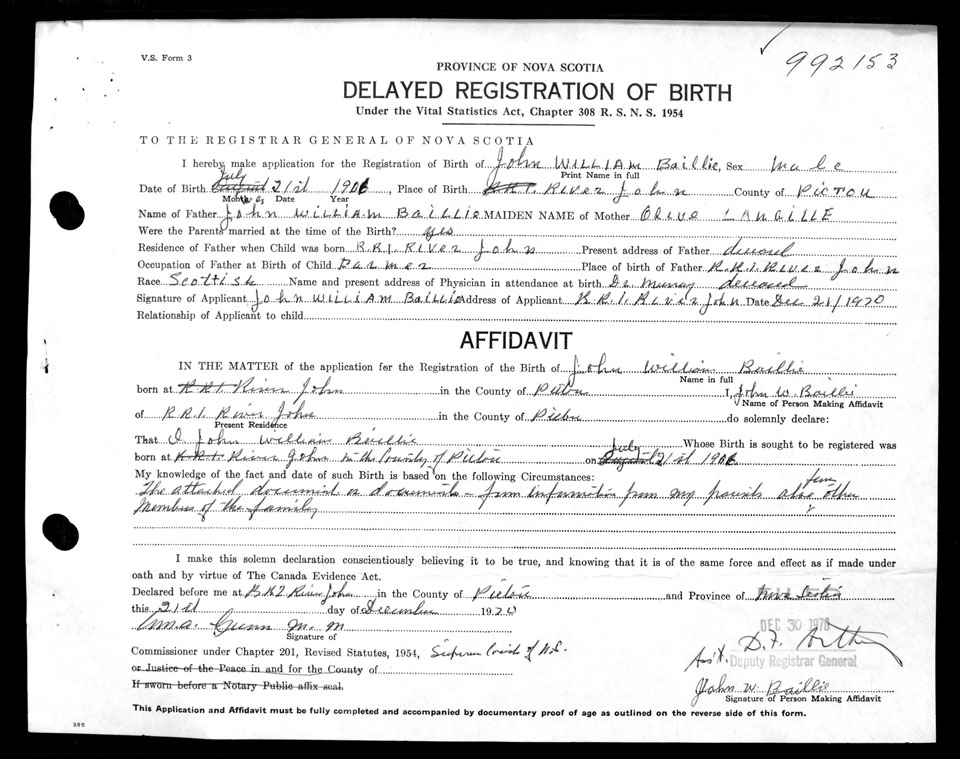 V.S. Form 3
992153
PROVINCE OF NOVA SCOTIA
DELAYED REGISTRATION OF BIRTH
Under the Vital Statistics Act, Chapter 308 R. S. N. S. 1954
TO THE REGISTRAR GENERAL OF NOVA SCOTIA
I hereby make application for the Registration of Birth of John WILLIAM Baillie, Sex Male
Print Name in full
July
Date of Birth August 21st 1906, Place of Birth R.R.1. River John County of PICTOU
Month Date Year
Name of Father John WILLIAM BAILLIE MAIDEN NAME of Mother OLIVE LANGILLE
Were the Parents married at the time of the Birth? yes
Residence of Father when Child was born R.R.1. RIVER John Present address of Father deceased
Occupation of Father at Birth of Child Farmer Place of birth of Father R.R.1. RIVER John
Race Scottish Name and present address of Physician in attendance at birth Dr. Murray deceased
Signature of Applicant John WILLIAM Baillie Address of Applicant R.R.1. River John Date Dec 21/1970
Relationship of Applicant to child
AFFIDAVIT
IN THE MATTER of the application for the Registration of the Birth of John William Baillie
Name in full
born at R.R.1. River John in the County of Pictou I, John W. Baillie
Name of Person Making Affidavit
of R.R.1. River John in the County of Pictou do solemnly declare:
Present Residence
That I John William Baillie Whose Birth is sought to be registered was
July
born at R.R.1. River John in the County of Pictou on August 21st 1906
My knowledge of the fact and date of such Birth is based on the following Circumstances:
from
The attached document or documents - from information from my parents also other
Members of the family
I make this solemn declaration conscientiously believing it to be true, and knowing that it is of the same force and effect as if made under
oath and by virtue of The Canada Evidence Act.
Declared before me at River John in the County of Pictou and Province of Nova Scotia
this 21st day of December 1970
Gunn
Signature of
Commissioner under Chapter 201, Revised Statutes, 1954, Supreme Court of N.S.
or Justice of the Peace in and for the County of
If sworn before a Notary Public affix seal.
DEC 30 1970
D.F.
Ass't. Deputy Registrar General
John W. Baillie
Signature of Person Making Affidavit
This Application and Affidavit must be fully completed and accompanied by documentary proof of age as outlined on the reverse side of this form.
385